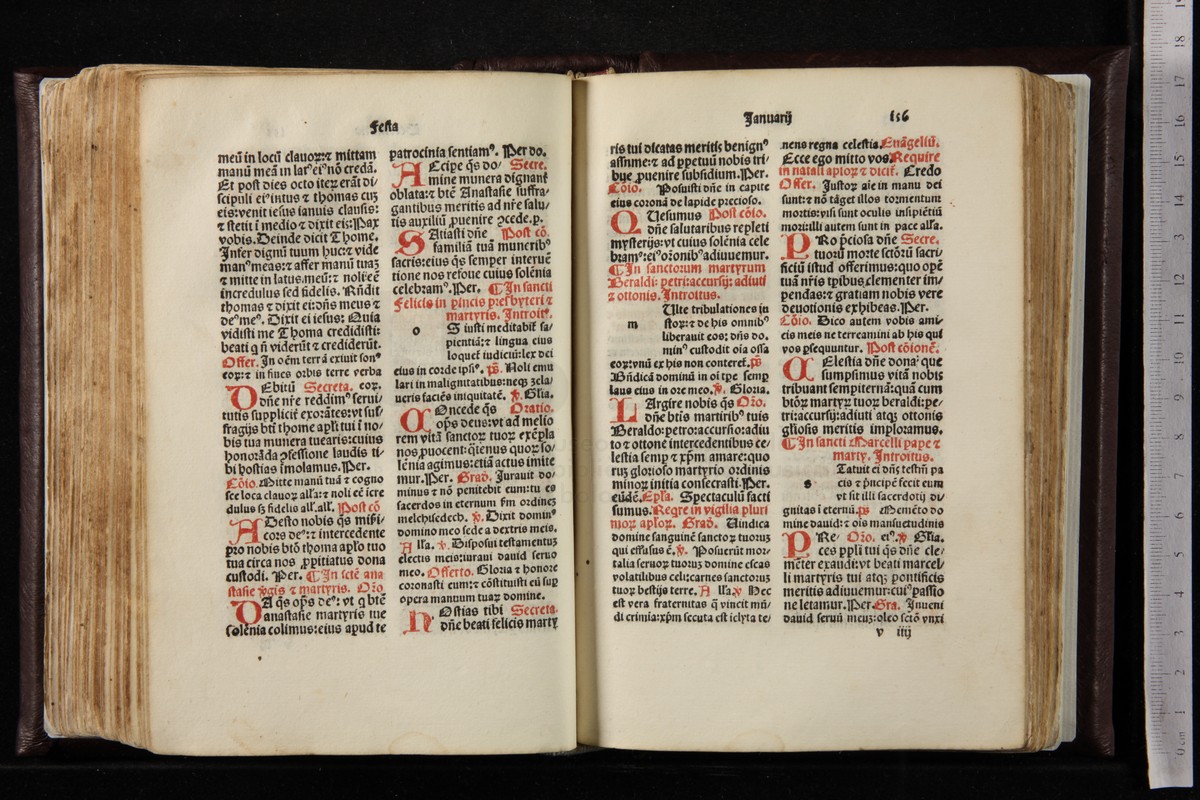 Festa
meū in locū clauoꝝ:⁊ mittam
manū meā in latꝰ eiꝰ nō credā.
Et post dies octo iteꝝ erāt di⸗
scipuli eiꝰ intus ⁊ thomas cuꝫ
eis:venit iesus ianuis clausis:
⁊ stetit ī medio ⁊ dixit eis:Pax
vobis. Deinde dicit Thome.
Infer digitū tuum huc:⁊ vide
manꝰ meas:⁊ affer manū tuaꝫ
⁊ mitte in latus meū:⁊ noli eē
incredulus sed fidelis. Rn̄dit
thomas ⁊ dixit ei:dn̄s meus ⁊
deꝰ meꝰ. Dixit ei iesus: Quia
vidisti me Thoma credidisti:
beati q̄ nō viderūt ⁊ crediderūt.
Offer. In oēm terrā exiuit sonꝰ
eoꝝ:⁊ in fines orbis terre verba
DEbitū Secreta. eoꝝ.
dn̄e nr̄e reddimꝰ serui⸗
tutis supplicit̄ exorātes:vt suf⸗
fragijs bt̄i thome apl̄i tui ī no⸗
bis tua munera tuearis:cuius
honorāda ꝓfessione laudis ti⸗
bi hostias īmolamus. Per.
Cōio. Mitte manū tuā ⁊ cogno
sce loca clauoꝝ all'a:⁊ noli eē īcre
dulus sꝫ fidelis all'. all'. Post cō
ADesto nobis q̄s miſ̄i⸗
cors deꝰ:⁊ intercedente
pro nobis btō thoma apl̄o tuo
tua circa nos ꝓpitiatus dona
custodi. Per. ¶In sctē ana
stasie v̄gis ⁊ martyris. Ořo
DA q̄s op̄s deꝰ: vt q̄ btē
anastasie martyris tue
solēnia colimus:eius apud te
patrocinia sentiamꝰ. Per do.
ACcipe q̄s do⸗ Secre.
mine munera dignant̄
oblata:⁊ btē Anastasie suffra⸗
gantibus meritis ad nr̄e salu⸗
tis auxiliū ꝓuenire ꝯcede. p.
SAtiasti dn̄e Post cō.
familiā tuā muneribꝰ
sacris:eius q̄s semper interuē
tione nos refoue cuius solēnia
celebramꝰ. Per. ¶In sancti
Felicis in pincis presbyteri ⁊
martyris. Introitꝰ.
o S iusti meditabit̄ sa⸗
pientiā:⁊ lingua eius
loquet̄ iudiciū:lex dei
eius in corde ipsiꝰ. ps̄. Noli emu
lari in malignātibus:neqꝫ zela⸗
ueris faciētes iniquitatē. v̄. Gl̄ia.
COncede q̄s Oratio.
op̄s deus:vt ad melio
rem vitā sanctoꝝ tuoꝝ exēpla
nos ꝓuocent:q̄tenus quoꝝ so⸗
lēnia agimus:etiā actus imite
mur. Per. Grad̄. Iurauit do⸗
minus ⁊ nō penitebit eum:tu es
sacerdos in eternum sm̄ ordineꝫ
melchisedech. v̄. Dixit dominꝰ
domino meo sede a dextris meis.
All'a. v̄. Disposui testamentuꝫ
electis meis:iuraui dauid seruo
meo. Offerto. Gloria ⁊ honore
coronasti eum:⁊ cōstituisti eū sup̄
opera manuum tuaꝝ domine.
HOstias tibi Secreta.
dn̄e beati felicis marty
Januarij 156
ris tui dicatas meritis benignꝰ
assume:⁊ ad ꝑpetuū nobis tri⸗
bue ꝓuenire subsidium. Per.
Cōio. Posuisti dn̄e in capite
eius coronā de lapide precioso.
QUesumus Post cōio.
dn̄e salutaribus repleti
mysterijs:vt cuius solēnia cele
bramꝰ:eiꝰ or̄onibꝰ adiuuemur.
¶In sanctorum martyrum
Beraldi: petri:accursij: adiuti
⁊ ottonis. Introitus.
m Ulte tribulationes iu
stoꝝ:⁊ de his omnibꝰ
liberauit eos: dn̄s do.
minꝰ custodit oīa ossa
eoꝝ:vnū ex his non conteret̄. ps̄.
Bn̄dicā dominū in oī tp̄e semꝑ
laus eius in ore meo. v̄. Gloria.
LArgire nobis q̄s Ořo.
dn̄e bt̄is martiribꝰ tuis
Beraldo:petro:accursio:adiu
to ⁊ ottone intercedentibus ce⸗
lestia semꝑ ⁊ xp̄m amare:quo
ruꝫ glorioso martyrio ordinis
minoꝝ initia consecrasti. Per.
eūdē. Epl̄a. Spectaculū facti
sumus. Reqr̄e in vigilia pluri
moꝝ apl̄oꝝ. Grad̄. Uindica
domine sanguinē sanctoꝝ tuoruꝫ
qui effusus ē. v̄. Posuerūt mor⸗
talia seruoꝝ tuoruꝫ domine escas
volatilibus celi:carnes sanctoruꝫ
tuoꝝ bestijs terre. All'a. v̄ Hec
est vera fraternitas q̄ vincit mū⸗
di crimīa:xp̄m secuta est īclyta te⸗
nens regna celestia. Euāgeliū.
Ecce ego mitto vos. Require
in natali apl̄oꝝ ⁊ dicit̄. Credo
Offer. Justoꝝ aīe in manu dei
sunt:⁊ nō tāget illos tormentum
mortis:visi sunt oculis insipiētiū
mori:illi autem sunt in pace all'a.
PRo p̄ciosa dn̄e Secre.
tuorū morte sctōrū sacri
ficiū istud offerimus:quo opē
tuā nr̄is tp̄ibus clementer im⸗
pendas:⁊ gratiam nobis vere
deuotionis exhibeas. Per.
Cōio. Dico autem vobis ami⸗
cis meis ne terreamini ab his qui
vos ꝑsequuntur. Post cōionē.
CElestia dn̄e dona: que
sumpsimus vitā nobis
tribuant sempiternā:quā cum
btōꝝ martyꝝ tuoꝝ beraldi:pe⸗
tri:accursij:adiuti atqꝫ ottonis
gl̄iosis meritis imploramus.
¶In sancti Marcelli pape ⁊
marty. Introitus.
s Tatuit ei dn̄s testm̄ pa
cis ⁊ p̄ncipē fecit eum
vt sit illi sacerdotij di⸗
gnitas ī eternū. ps̄ Memēto do
mine dauid:⁊ oīs mansuetudinis
PRe⸗ Ořo. eiꝰ. v̄ Gl̄ia.
ces ppl̄i tui q̄s dn̄e cle⸗
mēter exaudi:vt beati marcel⸗
li martyris tui atqꝫ pontificis
meritis adiuuemur:cuiꝰ passio
ne letamur. Per. Gra. Inueni
dauid seruū meuꝫ:oleo sctō vnxi
v iiij